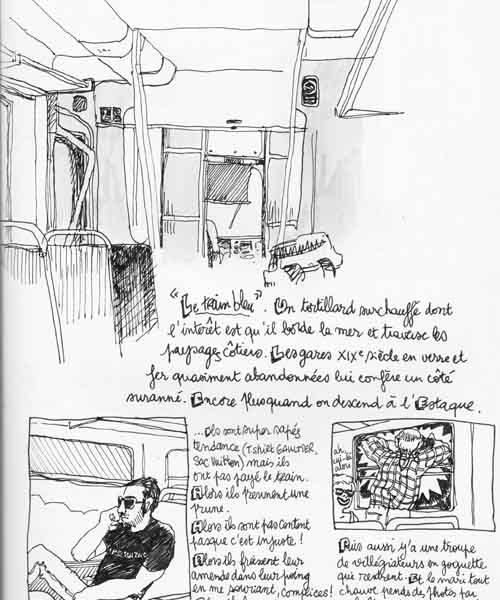 "Le train bleu". Un tortillard surchauffé dont
l'intérêt est qu'il borde la mer et traverse les
paysages côtiers. Les gares XIXe siècle en verre et
fer quasiment abandonnées lui confère un côté
suranné. Encore plus quand on descend à l'Estaque.
...Ils sont super sapés
tendance (T.shirt GAULTIER,
Sac Vuitton) mais ils
ont pas payé le train.
Alors ils prennent une
prune.
Alors ils sont pas content
pasque c'est injuste !
Alors ils froissent leur
amende dans leur poing
en me souriant, complices !
ah
Puis aussi y'a une troupe
de villégiateurs en goguette
qui rentrent. Et le mari tout
chauve prends des photos par